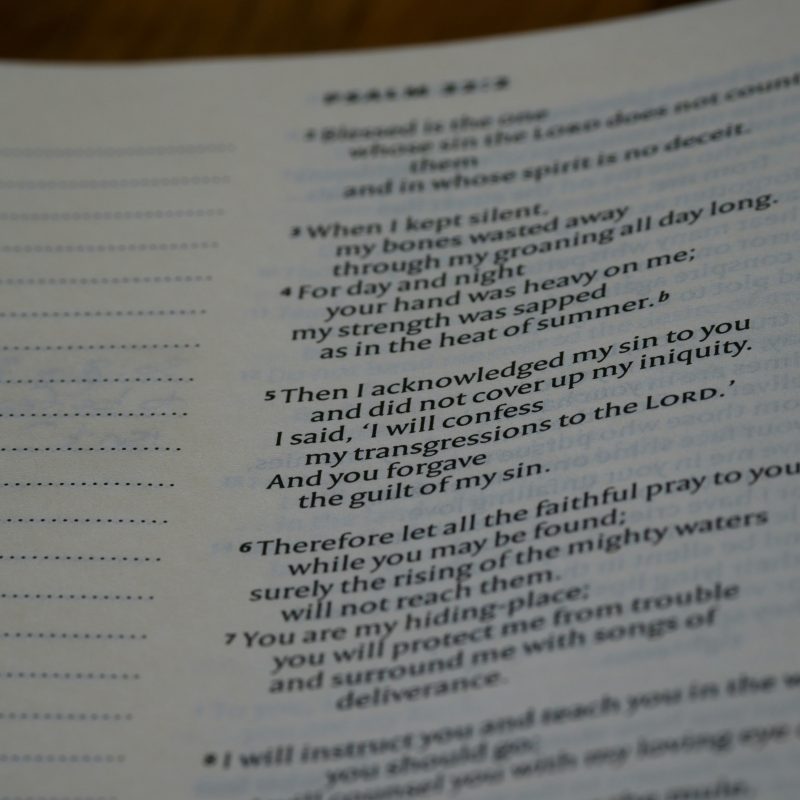 PSALM 32:2
2 Blessed is the one
whose sin the LORD does not count
them
and in whose spirit is no deceit.
3 When I kept silent,
my bones wasted away
through my groaning all day long.
4 For day and night
your hand was heavy on me;
my strength was sapped
as in the heat of summer.b
5 Then I acknowledged my sin to you
and did not cover up my iniquity.
I said, ‘I will confess
my transgressions to the LORD.’
And you forgave
the guilt of my sin.
6 Therefore let all the faithful pray to you
while you may be found;
surely the rising of the mighty waters
will not reach them.
7 You are my hiding-place;
you will protect me from trouble
and surround me with songs of
deliverance.
8 I will instruct you and teach you in the
you should go;
counsel you with my loving eye
the mule,